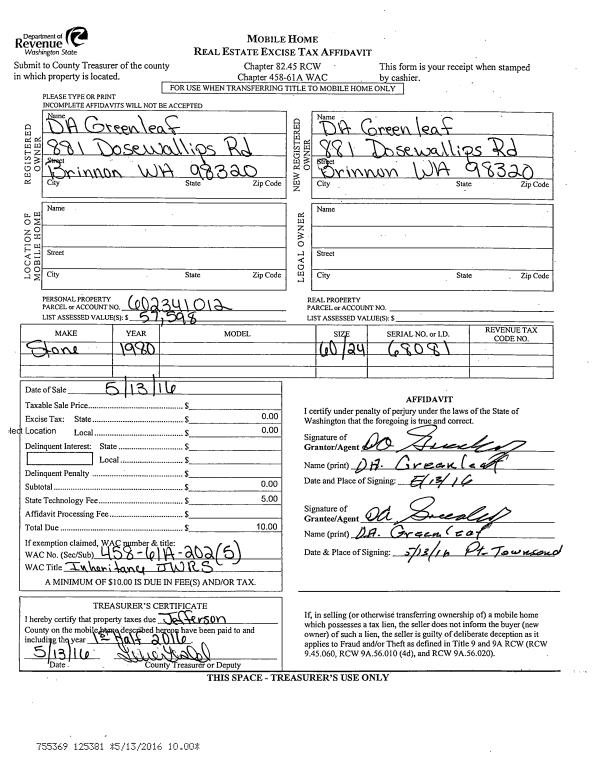 Department of
Revenue
Washington State
MOBILE HOME
REAL ESTATE EXCISE TAX AFFIDAVIT
Submit to County Treasurer of the county
in which property is located.
Chapter 82.45 RCW
Chapter 458-61A WAC
This form is your receipt when stamped
by cashier.
FOR USE WHEN TRANSFERRING TITLE TO MOBILE HOME ONLY
PLEASE TYPE OR PRINT
INCOMPLETE AFFIDAVITS WILL NOT BE ACCEPTED
REGISTERED
OWNER
Name
DA Greenleaf
881 Dosewallips Rd
Street
Brinnon WA 98320
City State Zip Code
NEW REGISTERED
OWNER
Name
DA Greenleaf
881 Dosewallips Rd
Street
Brinnon WA 98320
City State Zip Code
LOCATION OF
MOBILE HOME
Name
Street
City State Zip Code
LEGAL OWNER
Name
Street
City State Zip Code
PERSONAL PROPERTY
PARCEL or ACCOUNT NO. 602341012
LIST ASSESSED VALUE(S): $ 57,598
REAL PROPERTY
PARCEL or ACCOUNT NO.
LIST ASSESSED VALUE(S): $
MAKE YEAR MODEL SIZE SERIAL NO. or I.D. REVENUE TAX
CODE NO.
Stone 1980 60/24 68081
Date of Sale 5/13/16
Taxable Sale Price $
Excise Tax: State $ 0.00
lect Location Local $ 0.00
Delinquent Interest: State $
Local $
Delinquent Penalty $
Subtotal $ 0.00
State Technology Fee $ 5.00
Affidavit Processing Fee $
Total Due $ 10.00
If exemption claimed, WAC number & title:
WAC No. (Sec/Sub) 458-61A-202(5)
WAC Title Inheritance JWRS
A MINIMUM OF $10.00 IS DUE IN FEE(S) AND/OR TAX.
AFFIDAVIT
I certify under penalty of perjury under the laws of the State of
Washington that the foregoing is true and correct.
Signature of
Grantor/Agent
Name (print) D.A. Greenleaf
Date and Place of Signing: 5/13/16
Signature of
Grantee/Agent
Name (print) D.A. Greenleaf
Date & Place of Signing: 5/13/16 Pt. Townsend
TREASURER'S CERTIFICATE
I hereby certify that property taxes due Jefferson
County on the mobile home described hereon have been paid to and
including the year 1st Half 2016
5/13/16
Date County Treasurer or Deputy
If, in selling (or otherwise transferring ownership of) a mobile home
which possesses a tax lien, the seller does not inform the buyer (new
owner) of such a lien, the seller is guilty of deliberate deception as it
applies to Fraud and/or Theft as defined in Title 9 and 9A RCW (RCW
9.45.060, RCW 9A.56.010 (4d), and RCW 9A.56.020).
THIS SPACE - TREASURER'S USE ONLY
755369 125381 *5/13/2016 10.00*